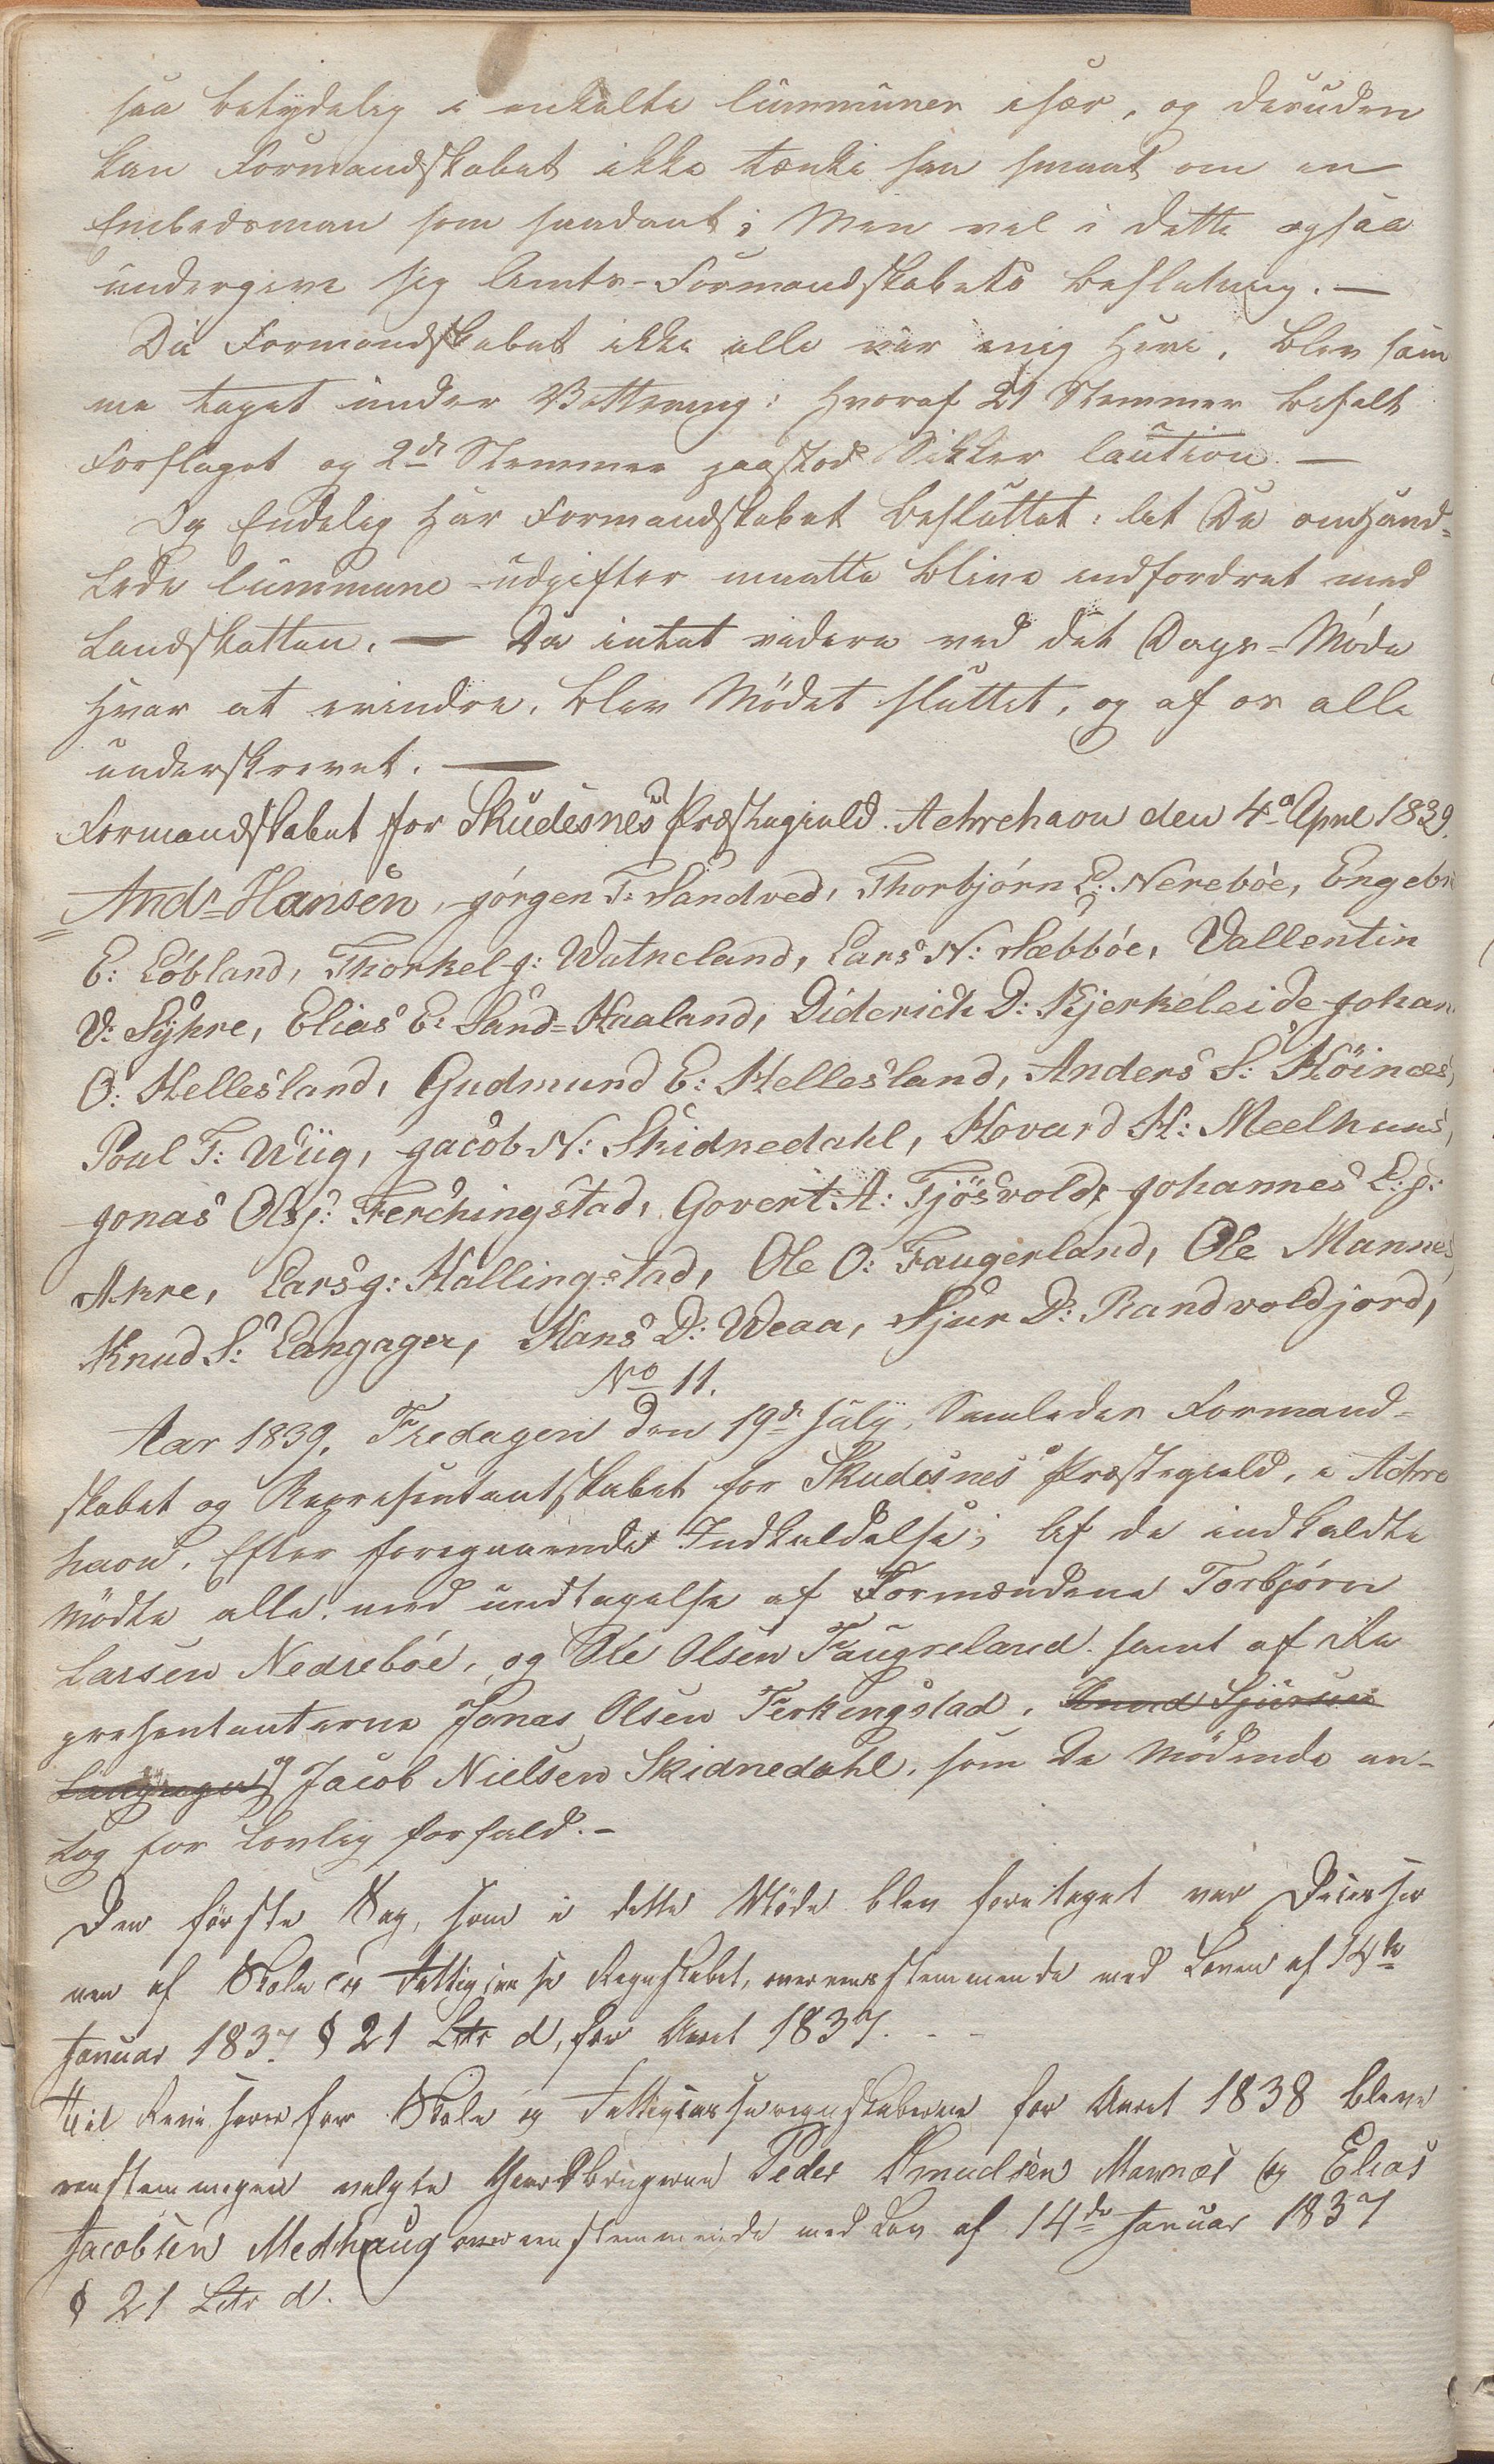 saa betydelig i enkelte Cummuner især, og desuden
kan Formandskabet ikke tænke saa smaat om en
Embedsman som saadant; Men vel i dette ogsaa
undergive sig Amts-Formandskabets beslutning. —
Da Formandskabet ikke alle var enig heri, blev sam
me taget under Vottering: hvoraf 21 Stemmer befalt
Forslaget og 2de Stemmer paastod Sikker Caution. —
Og Endelig har Formandskabet besluttet: at De omhand=
lede Cummune-udgifter maatte blive indfordret med
Landskatten. — Da intet videre ved det Dags-Møde
hvar at erindre, blev Mødet sluttet, og af os alle
underskrevet. —
Formandskabet for Skudesnes Præstegield. Aehrehavn den 4de April 1839.
Andr Hansen, Jørgen T: Sandved, Thorbjørn L: Nerebøe, Engebr
E: Løbland, Thorkel J: Watneland, Lars N: Sæbbøe, Vallentin
V: Syhre, Elias E: Sand=Haaland, Diderich D: Kjerkeleide Johan
O: Hellesland, Gudmund E: Hellesland, Anders S: Høines,
Poul T: Wiig, Jacob N: Skidnedahl, Hovard H: Meelhuus,
Jonas Ols: Ferchingstad, Govert A: Tjøsvold, Johannes L: J:
Akre, Lars J: Hallingstad, Ole O: Faugerland, Ole Mannes,
Knud S: Langager, Hans D: Weaa, Sjur D: Randvoldjord,
No 11.
Aar 1839, Fredagen den 19de July, Samledes Formand=
skabet og Repræsentantskabet for Skudesnes Præstegield, i Aehre
havn, Efter foregaaende Indkaldelse; Af de indkaldte
Mødte alle, med undtagelse af Formændene Torbjørn
Larsen Nedrebøe, og Ole Olsen Faugreland samt af Re
presentanterne Jonas Olsen Ferkingstad, Knud Sjursen
Langager og Jacob Nielsen Skidnedahl, som De Mødende an-
tog for Lovlig forfald. -
Den første Sag, som i dette Møde blev foretaget var Decisio
nen af Skole og Fattigcasse Regnskabet, overeensstemmende med Loven af 14de
Januar 1837 § 21 Litr d, for Aaret 1837. - -
Til Revisorer for Skole og Fattigcasseregnskaberne for Aaret 1838 bleve
eenstemmigen valgte Gaardbrugerne Peder Knudsen Mannæs og Elias
Jacobsen Medhaug overeenstemmende med Lov af 14de Januar 1837
§ 21 Litr d.